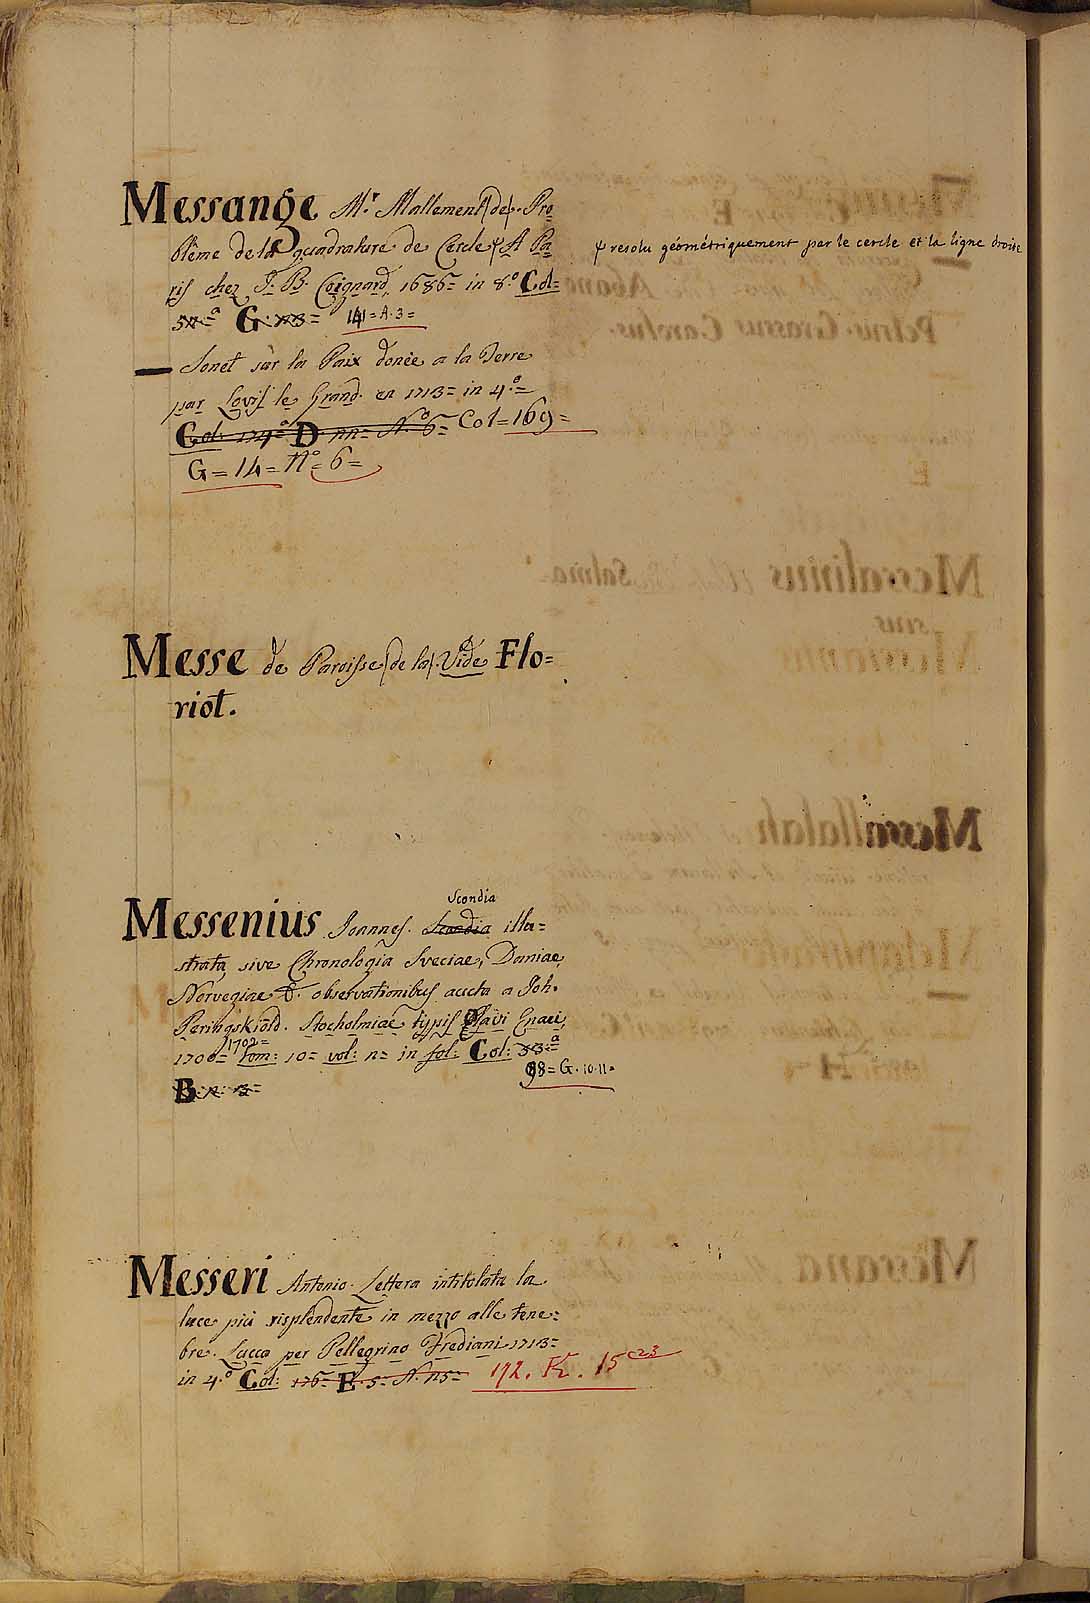 Messange Mr. Mallement (de). Pro
blême de la quadrature de Cercle ψ A Pa
ψ resolu géométriquement par le cercle et la ligne droite
ris chez J. B. Coignard, 1686= in 8.º Col=
G. 141=A.3=
— Sonet sur la Paix donèe a la Terre
par Lovis le Grand. en 1713= in 4.º=
Col: 174ª= D. nn= N.º 6= Col=169=
G=14=Nº=6=
Messe de Paroisse (de la). Vide Flo=
riot.
Scondia
Messenius Joannes. Scondia illu=
strata, sive Chronologia Sveciae, Daniae,
Norvegiae &. observationibus aucta a Joh.
Peringskiöld. Stocholmiae typis Olavi Enaei,
1700= 1702= Tom: 10= vol: n= in fol: Col: 33=ª
98=G.10.11=
B. n. 3=
Messeri Antonio. Lettera intitolata la
luce più risplendente in mezzo alle tene=
bre. Lucca per Pellegrino Frediani 1713=
in 4.º Col: 176= E. 5= N. n5= 172. K. 15 c23